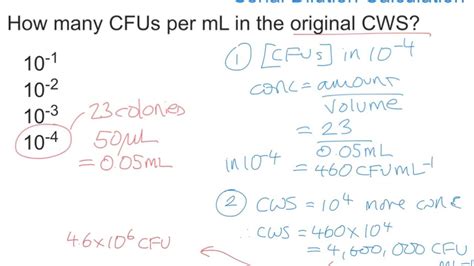 Serial Dilution Calculation
How many CFUs per mL in the original CWS?
10-1
10-2
10-3
10-4
23 colonies
50µL
= 0.05mL
① [CFUs] in 10-4
conc = amount
volume
= 23
0.05mL
in 10-4 = 460 CFU mL-1
② CWS = 10⁴ more conc
∴ CWS = 460 x 10⁴
= 4,600,000 CFU
mL-1
46 x 10⁶ CFU